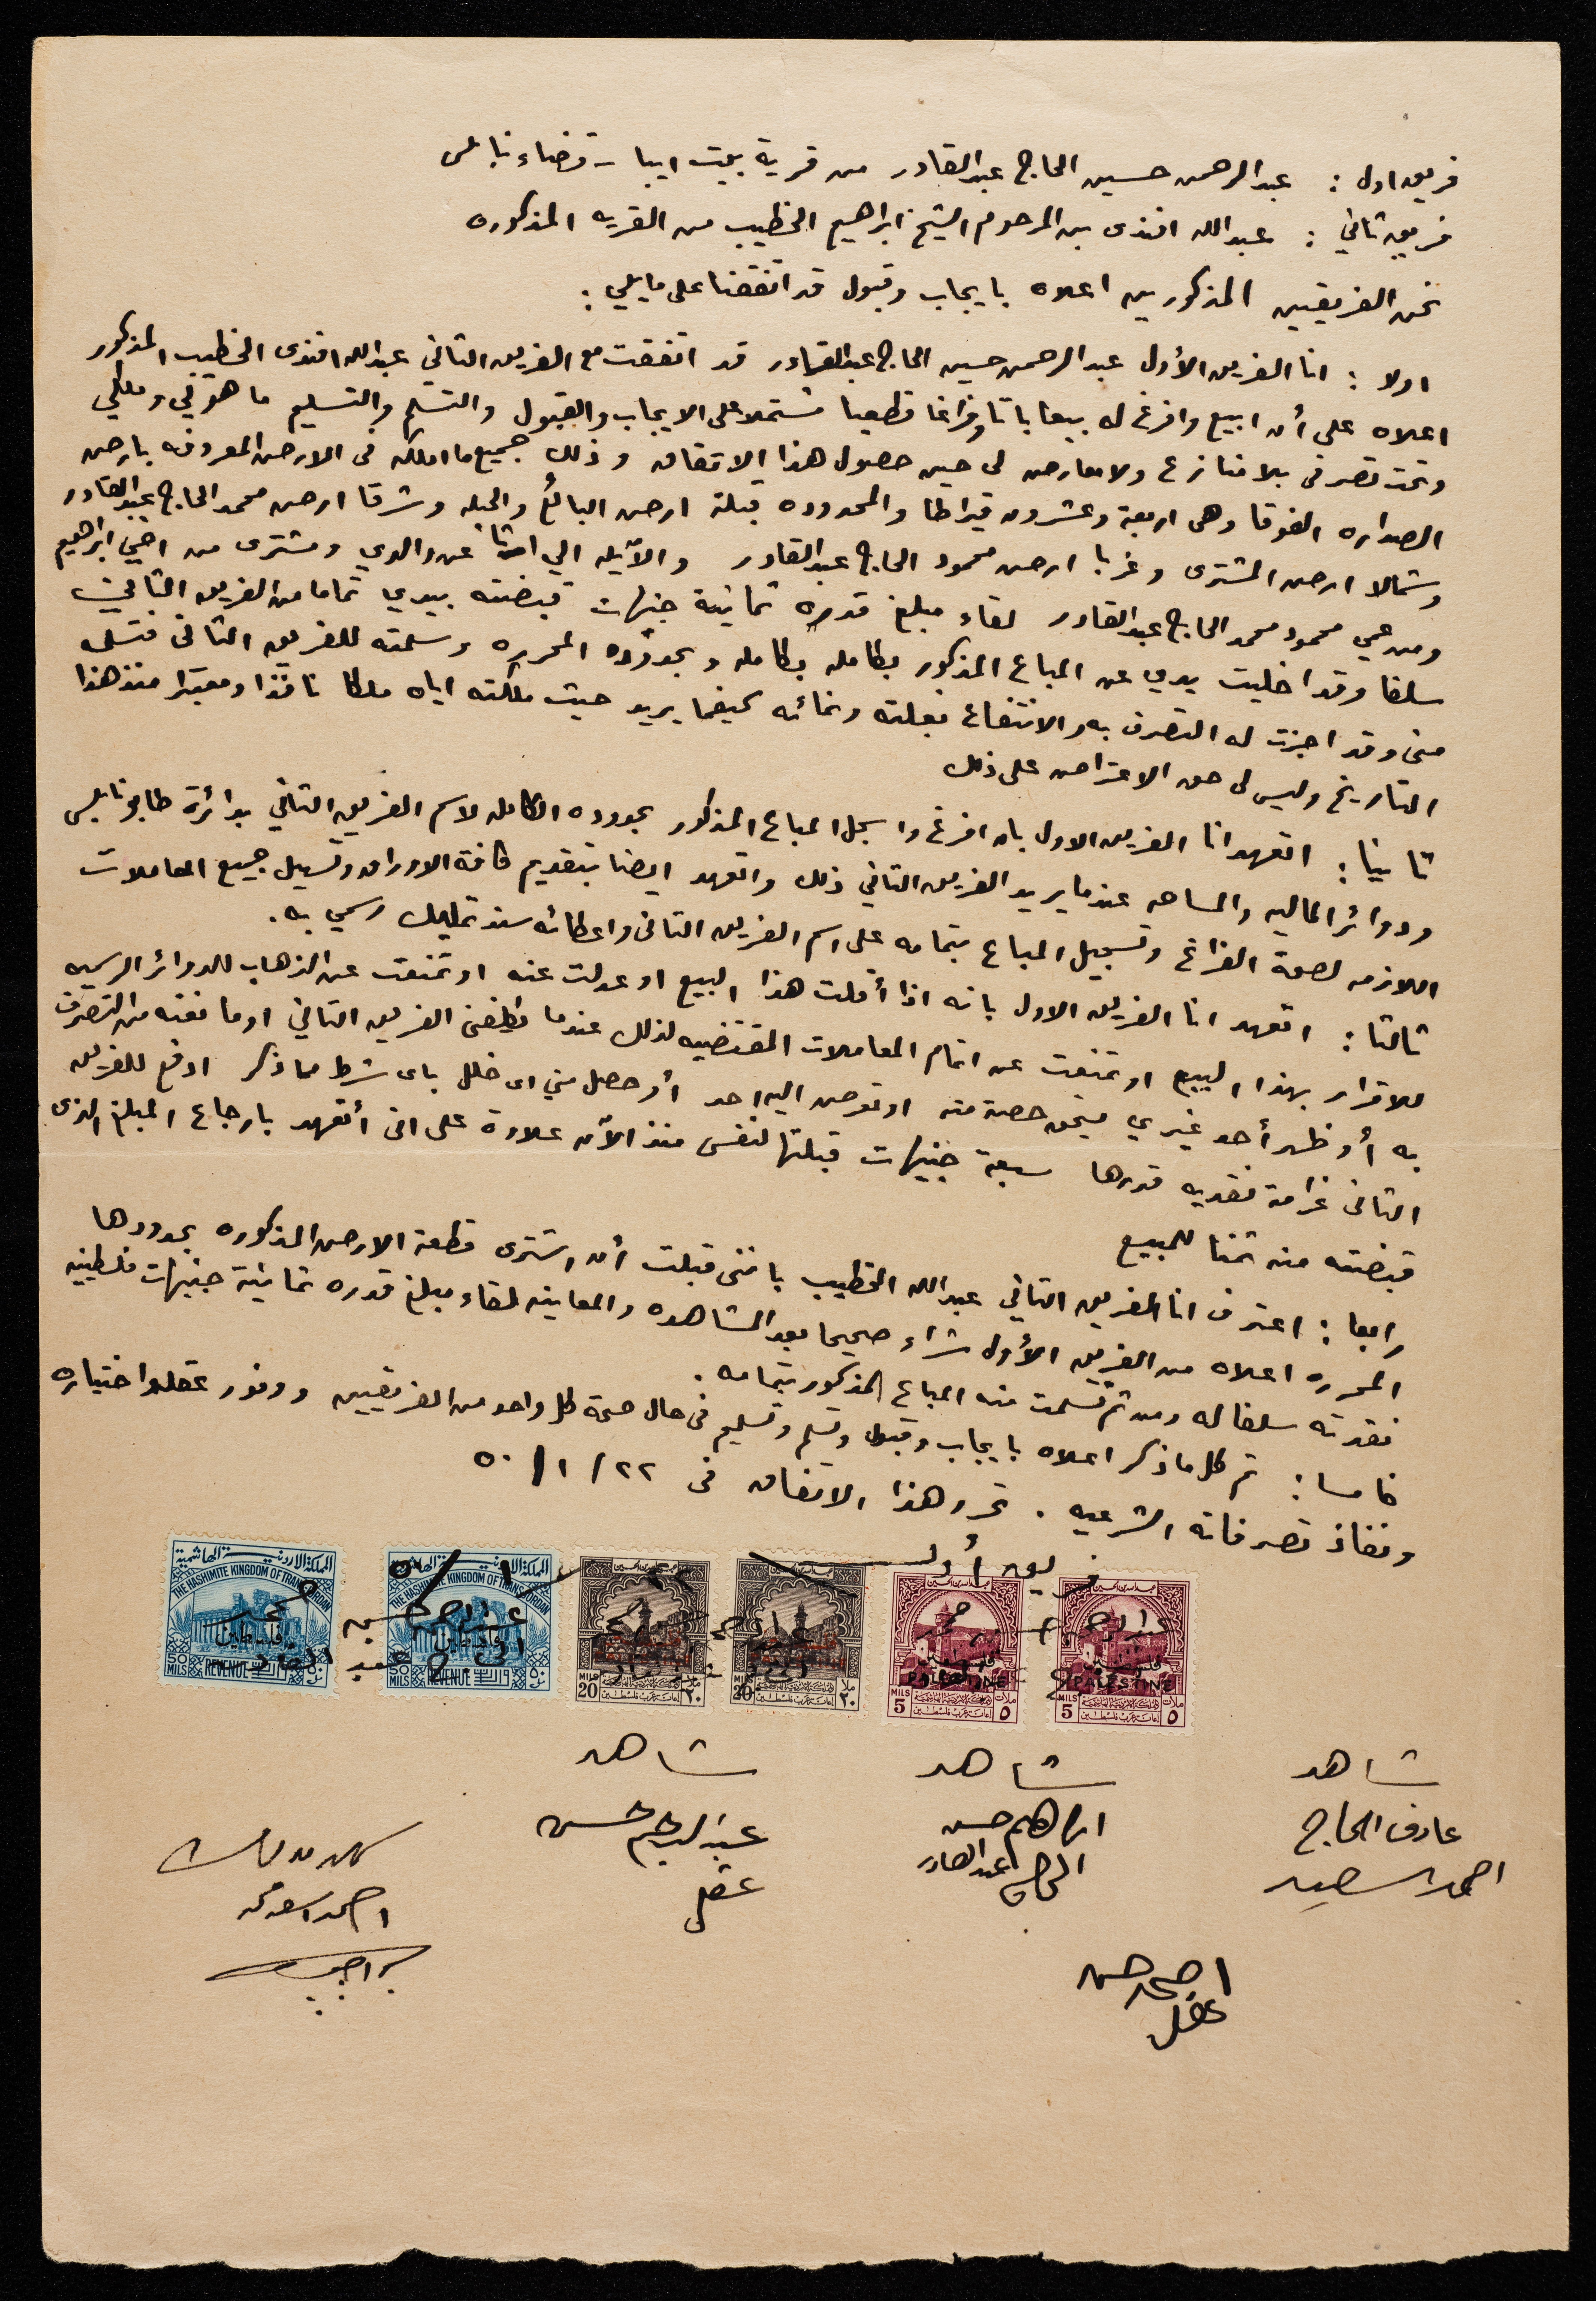 فريق اول : عبد الرحمن حسين الحاج عبد القادر من قرية بيت ايبا - قضاء نابلس
فريق ثاني : عبد الله افندى بن المرحوم الشيخ ابراهيم الخطيب من القريه المذكوره
نحن الفريقين المذكورين اعلاه بايجاب وقبول قد اتفقنا على مايلي :
اولا : انا الفريق الأول عبد الرحمن حسين الحاج عبد القادر قد اتفقت مع الفريق الثاني عبد الله افندى الخطيب المذكور
اعلاه على أن ابيع وافرغ له بيعا باتا وفراغا قطعيا مشتملا على الايجاب والقبول والتسلم والتسليم ما هو لي وملكي
وتحت تصرفى بلا منازع ولا معارض لى حين حصول هذا الاتفاق وذلك جميع ما املكه فى الارض المعروفه بارض
الصداره الفوقا وهى اربعة وعشرون قيراطا والمحدوده قبلة ارض البائع والجبله وشرقا ارض محمد الحاج عبد القادر
وشمالا ارض المشترى وغربا ارض محمود الحاج عبد القادر والآيله الي ارثا عن والدي ومشترى من اخيي ابراهيم
ومن عمي محمود محمد الحاج عبد القادر لقاء مبلغ قدره ثمانية جنيهات قبضته بيدي تماما من الفريق الثاني
سلفا وقد اخليت يدي عن المباع المذكور بكامله بكامله وبحدوده المحرره وسلمته للفريق الثانى فتسلمه
منى وقد اجزت له التصرف به والانتفاع بغلته ونمائه كيفما يريد حيث ملكته اياه ملكا نافذا ومعتبرا منذ هذا
التاريخ وليس لى حق الاعتراض على ذلك
ثانيا : اتعهد انا الفريق الاول بان افرغ واسجل المباع المذكور بحدوده الكامله لاسم الفريق الثاني بدائرة طابو نابلس
ودوائر الماليه والمساحه عندما يريد الفريق الثاني ذلك واتعهد ايضا بتقديم كافة الاوراق وتسهيل جميع المعاملات
اللازمه لصحة الفراغ وتسجيل المباع بتمامه على اسم الفريق الثانى واعطائه سند تمليك رسمي به .
ثالثا : اتعهد انا الفريق الاول بانه اذا أقلت هذا البيع او عدلت عنه او تمنعت عن الذهاب للدوائر الرسميه
للاقرار بهذا البيع او تمنعت عن اتمام المعاملات المقتضيه لذلك عندما يكلفنى الفريق الثاني او مانعته من التصرف
به أو ظهر أحد غيري يستحق حصة منه او تعرض اليه احد أو حصل مني اى خلل باى شرط مما ذكر ادفع للفريق
الثانى غرامة نقديه قدرها سبعة جنيهات قبلتها لنفسى منذ الآن علاوة على انى أتعهد بارجاع المبلغ الذى
قبضته منه ثمنا للمبيع
رابعا : اعترف انا الفريق الثاني عبد الله الخطيب باننى قبلت أن اشترى قطعة الارض المذكوره بحدودها
المحرره اعلاه من الفريق الأول شراء صحيحا بعد المشاهده والمعاينه لقاء مبلغ قدره ثمانية جنيهات فلسطينيه
نقدته سلفا له ومن ثم تسلمت منه المباع المذكور بتمامه .
خامسا : تم كل ما ذكر اعلاه بايجاب وقبول وتسلم وتسليم فى حال صحة كل واحد من الفريقين ووفور عقله واختياره
ونفاذ تصرفاته الشرعيه . تحرر هذا الاتفاق فى ٢٢ / ١ / ٥٠
فريق أول
المملكة الاردنية الهاشمية
THE HASHIMITE KINGDOM OF TRANSJORDAN
فلسطين
50 MILS REVENUE
THE HASHIMITE KINGDOM OF TRANSJORDAN
فلسطين
50 MILS REVENUE
MILS 20 ٢٠ ملا
MILS 20 ٢٠ ملا
فلسطين PALESTINE
MILS 5 ٥ ملات
فلسطين PALESTINE
MILS 5 ٥ ملات
عبد الرحمن حسين
الحاج عبد القادر
شاهد
عارف الحاج
احمد السعيد
شاهد
ابراهيم حسن
الحاج عبد القادر
شاهد
عبد الرحيم حسن
عقل
احمد حسن
عقل